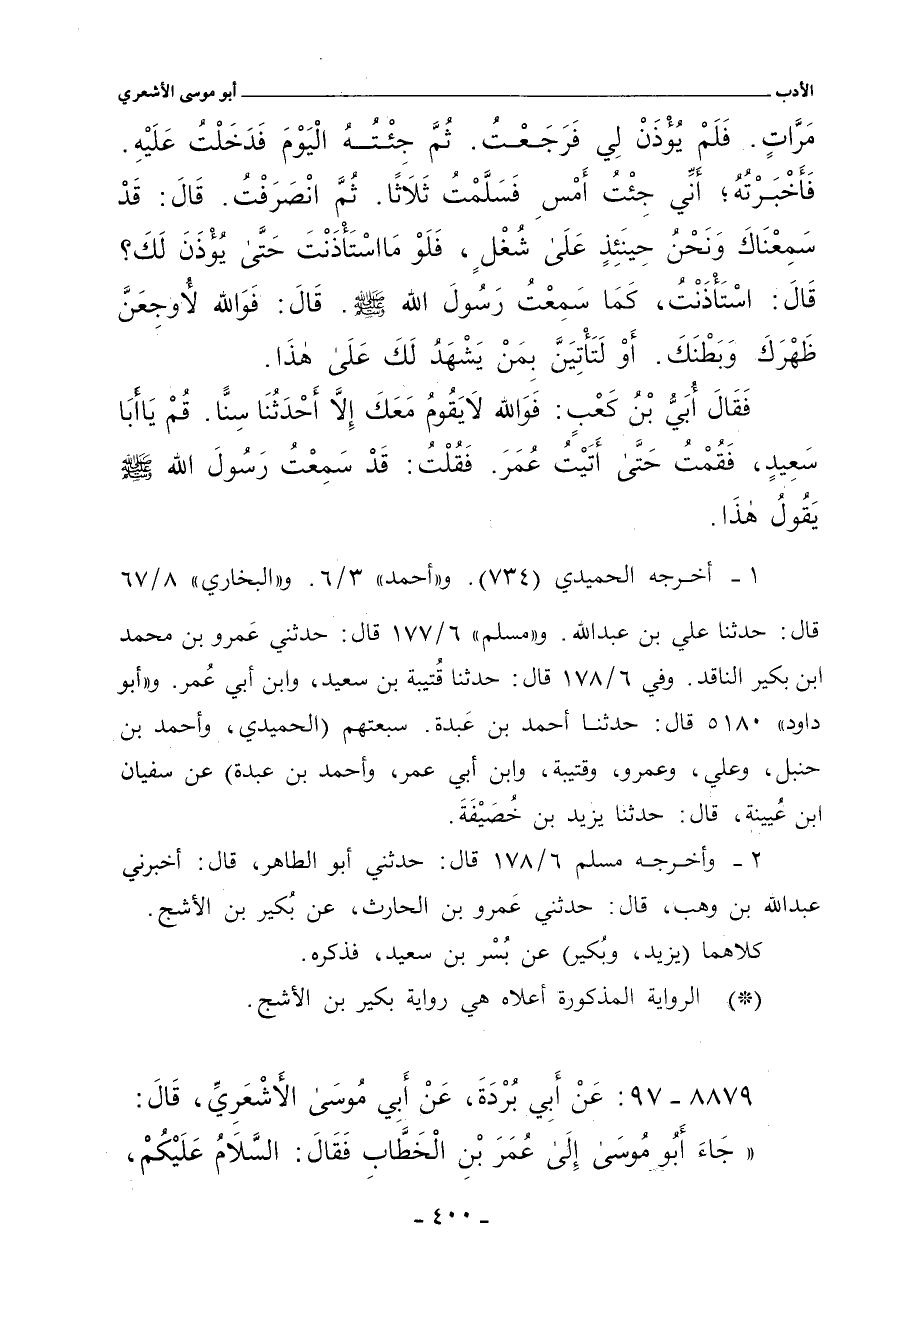 الأدب ــــــــ أبو موسى الأشعري
مَرَّاتٍ. فَلَمْ يُؤْذَنْ لِي فَرَجَعْتُ. ثُمَّ جِئْتُهُ الْيَوْمَ فَدَخَلْتُ عَلَيْهِ.
فَأَخْبَرْتُهُ؛ أَنِّي جِئْتُ أَمْسِ فَسَلَّمْتُ ثَلَاثًا. ثُمَّ انْصَرَفْتُ. قَالَ: قَدْ
سَمِعْنَاكَ وَنَحْنُ حِينَئِذٍ عَلَىٰ شُغْلٍ، فَلَوْ مَااسْتَأْذَنْتَ حَتَّىٰ يُؤْذَنَ لَكَ؟
قَالَ: اسْتَأْذَنْتُ، كَمَا سَمِعْتُ رَسُولَ الله ﷺ. قَالَ: فَوَالله لأُوجِعَنَّ
ظَهْرَكَ وَبَطْنَكَ. أَوْ لَتَأْتِيَنَّ بِمَنْ يَشْهَدُ لَكَ عَلَىٰ هٰذَا.
فَقَالَ أُبَيُّ بْنُ كَعْبٍ: فَوَالله لَايَقُومُ مَعَكَ إِلَّا أَحْدَثُنَا سِنًّا. قُمْ يَاأَبَا
سَعِيدٍ، فَقُمْتُ حَتَّىٰ أَتَيْتُ عُمَرَ. فَقُلْتُ: قَدْ سَمِعْتُ رَسُولَ الله ﷺ
يَقُولُ هٰذَا.
١ - أخرجه الحميدي (٧٣٤). و«أحمد» ٦/٣. و«البخاري» ٦٧/٨
قال: حدثنا علي بن عبدالله. و«مسلم» ١٧٧/٦ قال: حدثني عَمرو بن محمد
ابن بكير الناقد. وفي ١٧٨/٦ قال: حدثنا قُتيبة بن سعيد، وابن أبي عُمر. و«أبو
داود» ٥١٨٠ قال: حدثنا أحمد بن عَبدة. سبعتهم (الحميدي، وأحمد بن
حنبل، وعلي، وعمرو، وقتيبة، وابن أبي عمر، وأحمد بن عبدة) عن سفيان
ابن عُيينة، قال: حدثنا يزيد بن خُصَيْفَةَ.
٢ - وأخرجه مسلم ١٧٨/٦ قال: حدثني أبو الطاهر، قال: أخبرني
عبدالله بن وهب، قال: حدثني عَمرو بن الحارث، عن بُكير بن الأشج.
كلاهما (يزيد، وبُكير) عن بُسْر بن سعيد، فذكره.
(*) الرواية المذكورة أعلاه هي رواية بكير بن الأشج.
٨٨٧٩ - ٩٧: عَنْ أَبِي بُرْدَةَ، عَنْ أَبِي مُوسَىٰ الأَشْعَرِيِّ، قَالَ:
« جَاءَ أَبُو مُوسَىٰ إِلَىٰ عُمَرَ بْنِ الْخَطَّابِ فَقَالَ: السَّلَامُ عَلَيْكُمْ،
- ٤٠٠ -